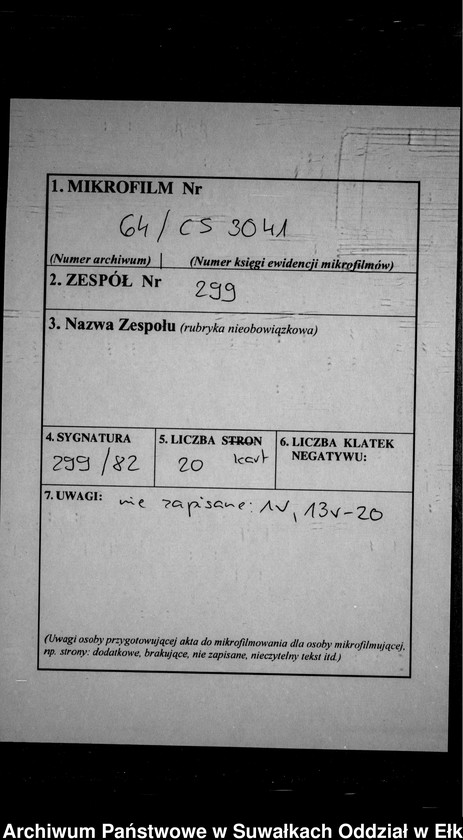 1. MIKROFILM Nr
64 / CS 3041
(Numer archiwum) | (Numer księgi ewidencji mikrofilmów)
2. ZESPÓŁ Nr 299
3. Nazwa Zespołu (rubryka nieobowiązkowa)
4. SYGNATURA
299 / 82
5. LICZBA STRON
20 kart
6. LICZBA KLATEK
NEGATYWU:
7. UWAGI: nie zapisane: 1v, 13v-20
(Uwagi osoby przygotowującej akta do mikrofilmowania dla osoby mikrofilmującej,
np. strony: dodatkowe, brakujące, nie zapisane, nieczytelny tekst itd.)
Archiwum Państwowe w Suwałkach Oddział w Ełk